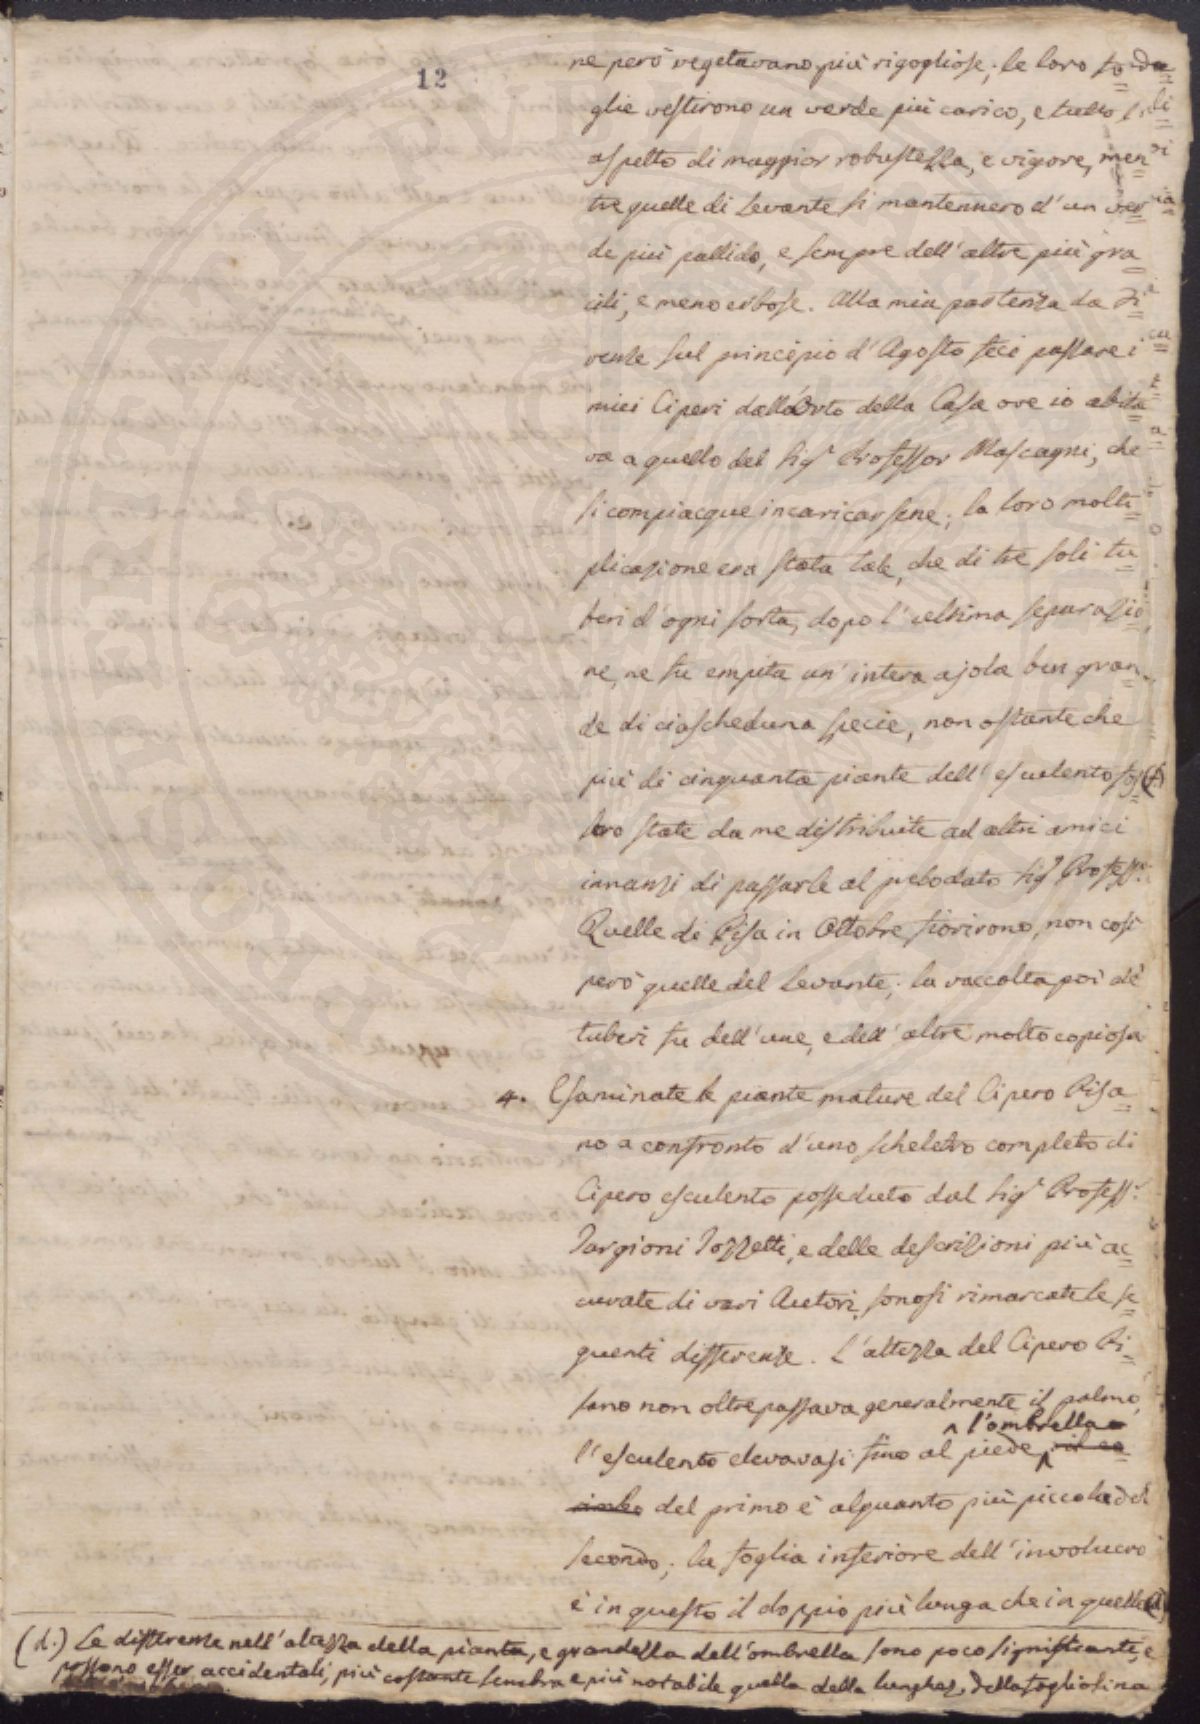 12
ne però vegetavano più rigogliose; le loro fo=
glie vestirono un verde più carico, e tutto l'
aspetto di maggior robustezza, e vigore, men
tre quelle di Levante si mantennero d'un ver=
de più pallido, e sempre dell'altre più gra=
cili, e meno erbose. Alla mia partenza da Fi=
renze sul principio d'Agosto feci passare i
miei Ciperi dall'Orto della Casa ove io abita=
va a quello del Sig.r Professor Mascagni, che
si compiacque incaricarsene; la loro molti=
plicazione era stata tale, che di tre soli tu=
beri d'ogni sorta, dopo l'ultima separazio=
ne, ne fu empita un'intera ajola ben gran=
de di ciascheduna specie, non ostante che
più di cinquanta piante dell'esculento fos=
sero state da me distribuite ad altri amici
innanzi di passarle al prelodato Sig.r Profess.r
Quelle di Pisa in Ottobre fiorirono, non così
però quelle del Levante; la raccolta poi de'
tuberi fu dell'une, e dell'altre molto copiosa
4. Esaminate le piante mature del Cipero Pisa=
no a confronto d'uno scheletro completo di
Cipero esculento posseduto dal Sig.r Profess.r
Targioni Tozzetti, e delle descrizioni più ac=
curate di vari Autori, sonosi rimarcate le se=
guenti differenze. L'altezza del Cipero Pi=
sano non oltrepassava generalmente il palmo,
l'ombrella
l'esculento elevavasi fino al piede,
del primo è alquanto più piccola del
secondo; la foglia inferiore dell'involucro
è in questo il doppio più lunga che in quello (d)
(d.) Le differenze nell'altezza della pianta, e grandezza dell'ombrella sono poco significanti, e
possono esser accidentali, più costante sembra e più notabile quella della lunghez. della fogliolina